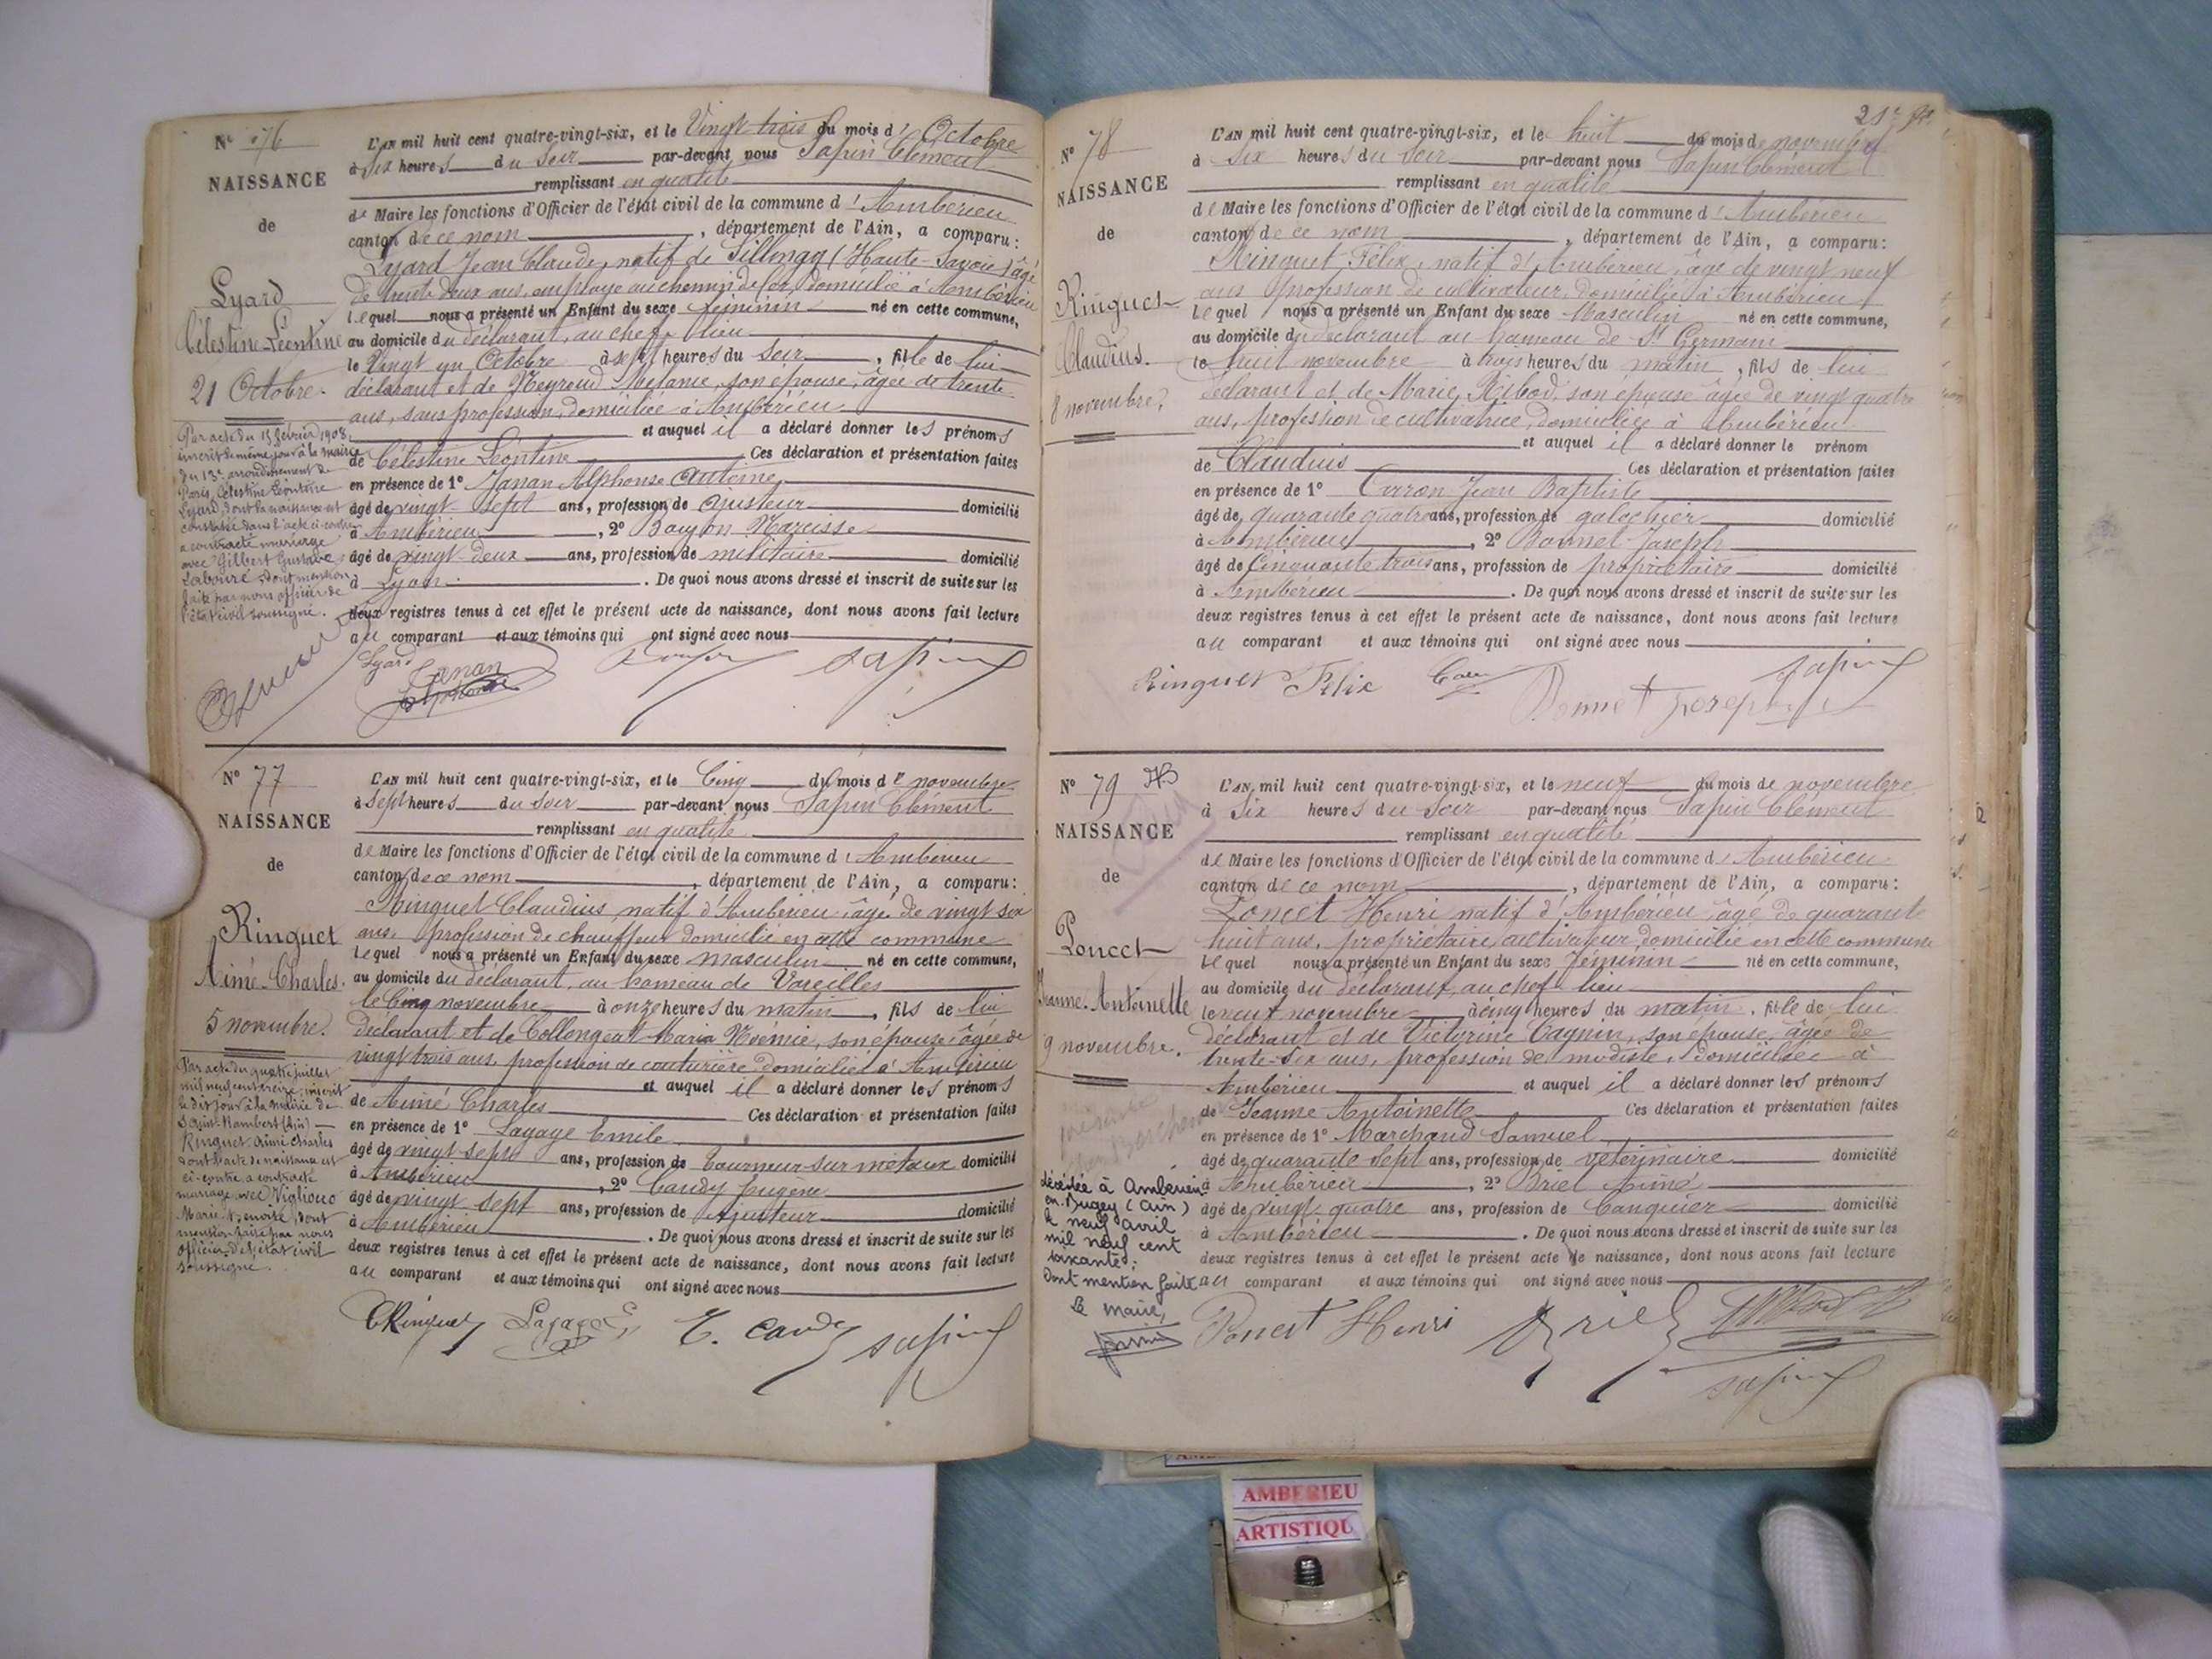 N° 76
NAISSANCE
de
Lyard
Célestine Léontine
21 Octobre.
Par acte du 15 février 1908,
inscrit le même jour à la mairie
du 13e arrondissement de
Paris, Célestine Léontine
Lyard, dont la naissance est
constatée dans l'acte ci-contre
a contracté mariage
avec Gilbert Gustave
Labouré dont mention
faite par nous officier de
l'état civil soussigné.
L'AN mil huit cent quatre-vingt-six, et le Vingt trois du mois d' Octobre
à six heures du soir par-devant nous Sapin Clément
remplissant en qualité
de Maire les fonctions d'Officier de l'état civil de la commune d'Ambérieu
canton de ce nom, département de l'Ain, a comparu:
Lyard Jean Claude, natif de Sillingy (Haute-Savoie) âgé
de trente deux ans, employé au chemin de fer, domicilié à Ambérieu
lequel nous a présenté un Enfant du sexe féminin né en cette commune,
au domicile du déclarant, au chef-lieu
le Vingt un Octobre à sept heures du soir, fille de lui
déclarant et de Neyroud Mélanie, son épouse, âgée de trente
ans, sans profession, domiciliée à Ambérieu
et auquel il a déclaré donner les prénoms
de Célestine Léontine Ces déclaration et présentation faites
en présence de 1° Janan Alphonse Antoine
âgé de vingt-sept ans, profession de ajusteur domicilié
à Ambérieu, 2° Narcisse
âgé de vingt deux ans, profession de militaire domicilié
à Lyon. De quoi nous avons dressé et inscrit de suite sur les
deux registres tenus à cet effet le présent acte de naissance, dont nous avons fait lecture
au comparant et aux témoins qui ont signé avec nous
Lyard Janan Alphonse Sapin
N° 77
NAISSANCE
de
Ringuet
Aimé-Charles.
5 novembre.
Par acte du quatre juillet
mil neuf cent treize, inscrit
le dit jour à la mairie de
Saint-Rambert (Ain)
Ringuet Aimé Charles
dont l'acte de naissance est
ci-contre a contracté
mariage avec Viglioco
Marie Benoite, dont
mention faite par nous
officier de l'état civil
soussigné.
L'AN mil huit cent quatre-vingt-six, et le Cinq du mois de novembre
à sept heures du soir par-devant nous Sapin Clément
remplissant en qualité
de Maire les fonctions d'Officier de l'état civil de la commune d'Ambérieu
canton de ce nom, département de l'Ain, a comparu:
Ringuet Claudius, natif d'Ambérieu, âgé de vingt six
ans, profession de chauffeur domicilié en cette commune
lequel nous a présenté un Enfant du sexe masculin né en cette commune,
au domicile du déclarant, au hameau de Vareilles
le Cinq novembre à onze heures du matin, fils de lui
déclarant et de Collongeat Maria Noémie, son épouse âgée de
vingt trois ans, profession de couturière domiciliée à Ambérieu
et auquel il a déclaré donner les prénoms
de Aimé Charles Ces déclaration et présentation faites
en présence de 1° Lagage Emile
âgé de vingt sept ans, profession de tourneur sur métaux domicilié
à Ambérieu, 2° Caudy Eugène
âgé de vingt sept ans, profession de Ajusteur domicilié
à Ambérieu. De quoi nous avons dressé et inscrit de suite sur les
deux registres tenus à cet effet le présent acte de naissance, dont nous avons fait lecture
au comparant et aux témoins qui ont signé avec nous
CRinguet Lagage E. Caudy Sapin
N° 78
NAISSANCE
de
Ringuet
Claudius.
8 novembre.
L'AN mil huit cent quatre-vingt-six, et le huit du mois de novembre
à six heures du soir par-devant nous Sapin Clément
remplissant en qualité
de Maire les fonctions d'Officier de l'état civil de la commune d'Ambérieu
canton de ce nom, département de l'Ain, a comparu:
Ringuet Félix, natif d'Ambérieu, âgé de vingt neuf
ans profession de cultivateur, domicilié à Ambérieu
lequel nous a présenté un Enfant du sexe Masculin né en cette commune,
au domicile du déclarant au hameau de St Germain
le huit novembre à trois heures du matin, fils de lui
déclarant et de Marie Ribod, son épouse âgée de vingt quatre
ans, profession de cultivatrice, domiciliée à Ambérieu
et auquel il a déclaré donner le prénom
de Claudius Ces déclaration et présentation faites
en présence de 1° Carron Jean Baptiste
âgé de quarante quatre ans, profession de galochier domicilié
à Ambérieu, 2° Bonnet Joseph
âgé de Cinquante trois ans, profession de propriétaire domicilié
à Ambérieu. De quoi nous avons dressé et inscrit de suite sur les
deux registres tenus à cet effet le présent acte de naissance, dont nous avons fait lecture
au comparant et aux témoins qui ont signé avec nous
Ringuet Félix Bonnet Joseph Sapin
N° 79
NAISSANCE
de
Poncet
Jeanne-Antoinette
9 novembre.
décédée à Ambérieu
en-Bugey (Ain)
le neuf avril
mil neuf cent
soixante;
Dont mention faite
Le Maire,
L'AN mil huit cent quatre-vingt-six, et le neuf du mois de novembre
à six heures du soir par-devant nous Sapin Clément
remplissant en qualité
de Maire les fonctions d'Officier de l'état civil de la commune d'Ambérieu
canton de ce nom, département de l'Ain, a comparu:
Poncet Henri natif d'Ambérieu âgé de quarante
huit ans, propriétaire cultivateur, domicilié en cette commune
lequel nous a présenté un Enfant du sexe féminin né en cette commune,
au domicile du déclarant, au chef-lieu
le neuf novembre à cinq heures du matin, fille de lui
déclarant et de Victorine Cagnin, son épouse, âgée de
trente-six ans, profession de modiste, domiciliée à
Ambérieu et auquel il a déclaré donner les prénoms
de Jeanne Antoinette Ces déclaration et présentation faites
en présence de 1° Marchand Samuel
âgé de quarante sept ans, profession de vétérinaire domicilié
à Ambérieu, 2° Briel Aimé
âgé de vingt quatre ans, profession de banquier domicilié
à Ambérieu. De quoi nous avons dressé et inscrit de suite sur les
deux registres tenus à cet effet le présent acte de naissance, dont nous avons fait lecture
au comparant et aux témoins qui ont signé avec nous
Poncet Henri Briel
Sapin
AMBERIEU
ARTISTIQU